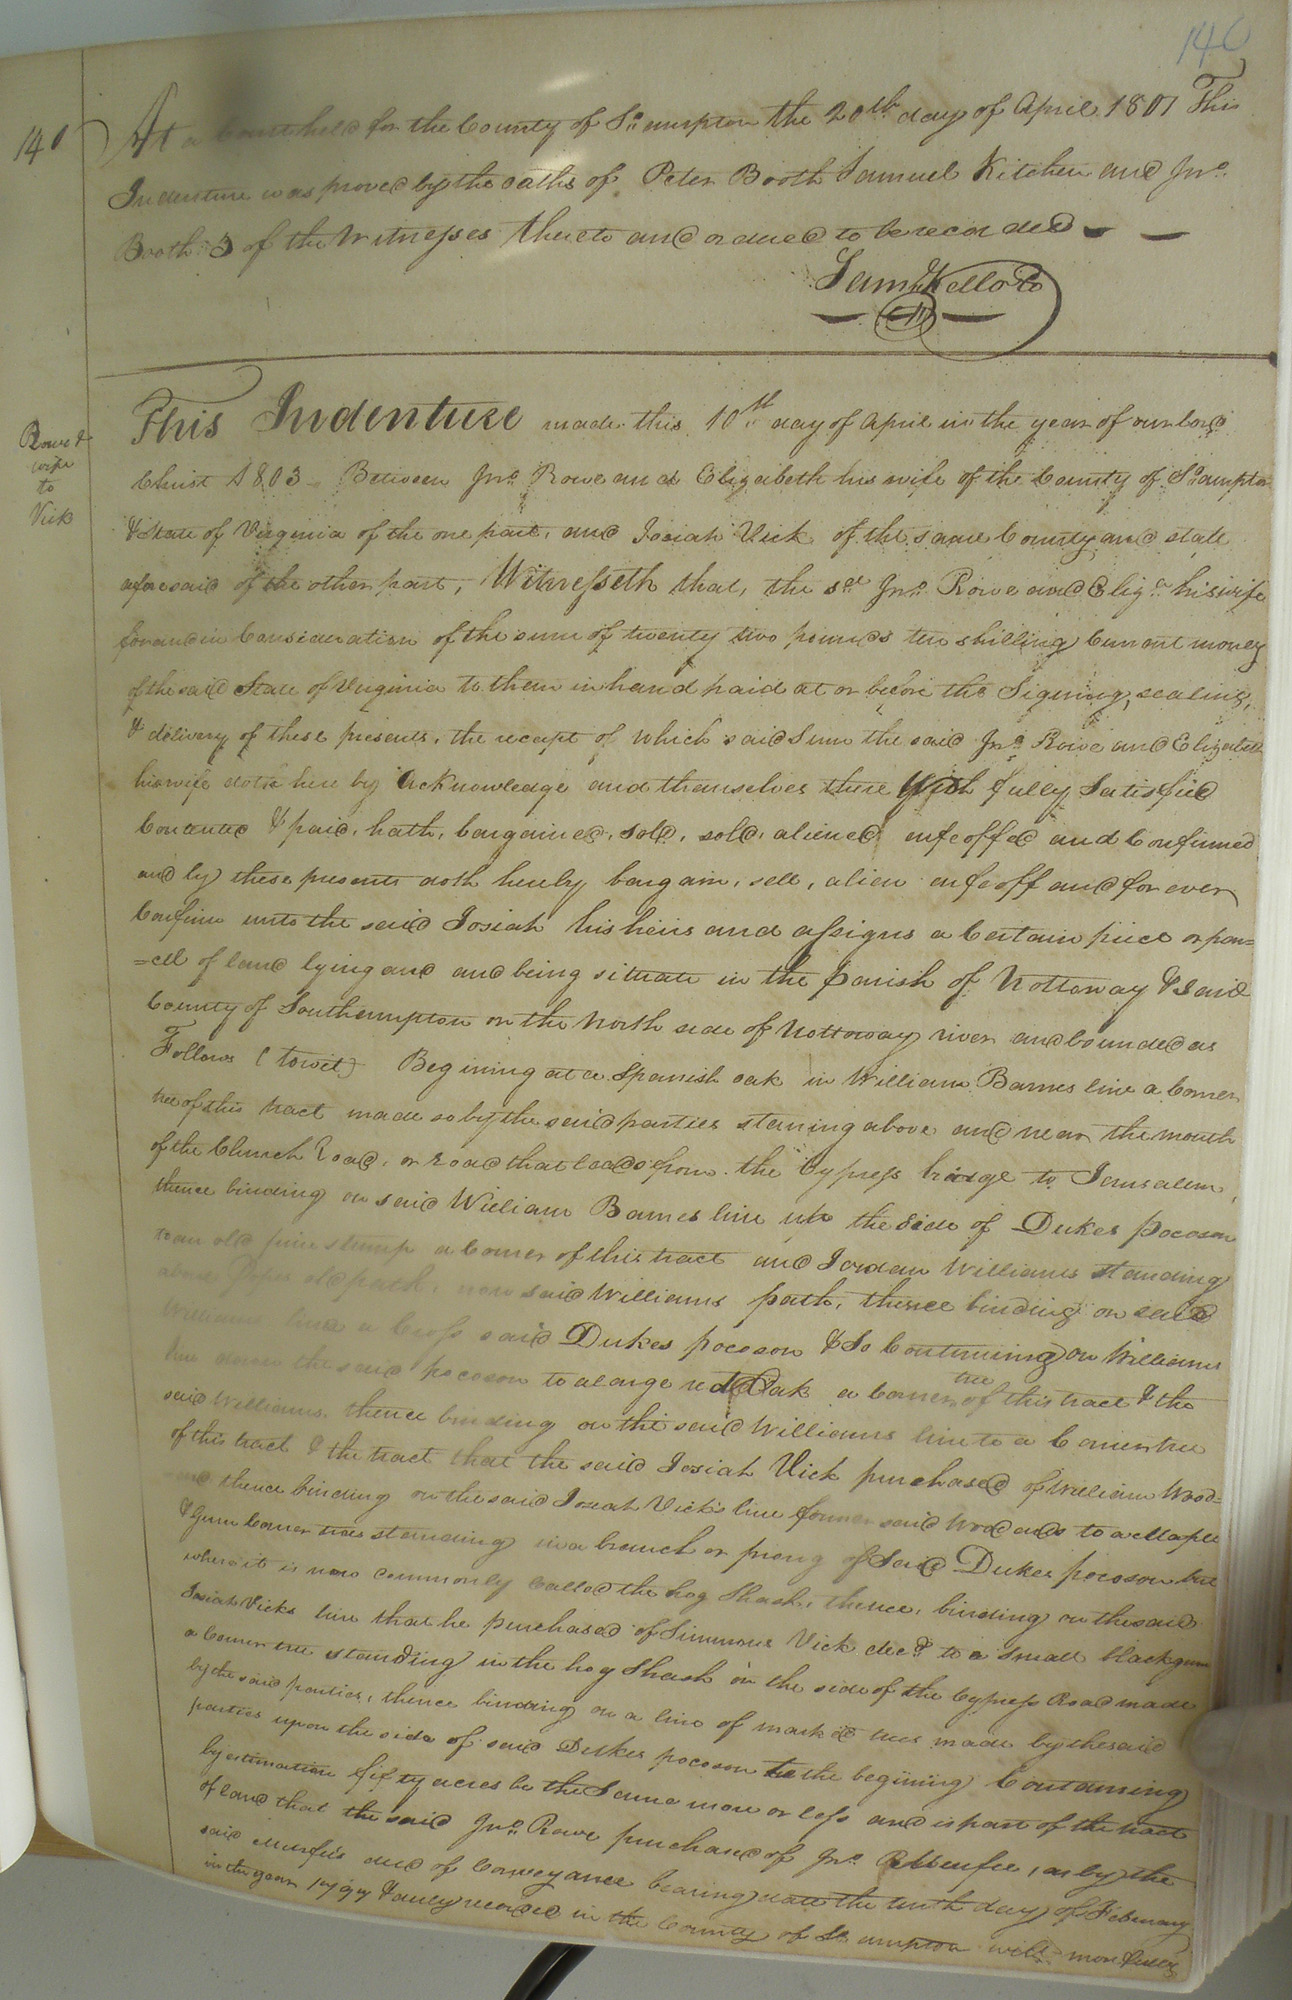 146
140
At a Court held for the County of So.ampton the 20th day of April 1801 This
Indenture was proved by the oaths of Peter Booth Samuel Kitchen and Jno.
Booth 3 of the Witnesses thereto and ordered to be recorded
Saml Kello Co
Rowe &
wife
to
Vick
This Indenture made this 10th day of April in the year of our Lord
Christ 1803 Between Jno. Rowe and Elizabeth his wife of the County of So.ampton
& State of Virginia of the one part, and Josiah Vick of the same County and state
aforesaid of the other part, Witnesseth that, the sd. Jno. Rowe and Eliza. his wife
for and in Consideration of the sum of twenty two pounds ten shilling Current money
of the said State of Virginia to them in hand paid at or before the Signing, sealing,
& delivery of these presents, the receipt of which said Sum the said Jno. Rowe and Elizabeth
his wife doth here by acknowledge and themselves there With fully Satisfied
Contented & paid, hath, bargained, sold, sold, aliened enfeoffed and Confirmed
and by these presents doth hereby bargain, sell, alien enfeoff and for ever
Confirm unto the said Josiah his heirs and assigns a Certain piece or par=
=cell of land lying and and being situate in the parish of Nottoway & said
County of Southampton on the North side of Nottoway river and bounded as
Follows (towit) Begining at a Spanish oak in William Barnes line a Corner
tree of this tract made so by the said parties staning above and near the mouth
of the Church Road, or road that leads from the Cypress bridge to Jerusalem,
thence binding on said William Barnes line up the Side of Dukes pocoson
to an old pine stump a Corner of this tract and Jordan Williams standing
above old path, now said Williams path, thence binding on said
Williams line a Cross said Dukes pocoson & So Continuing on Williams
line down the said pocoson to a large red Oak a Corner tree of this tract & the
said Williams, thence binding on the said Williams line to a Corner tree
of this tract & the tract that the said Josiah Vick purchased of William Wood=
=ard thence binding on the said Josiah Vick's line former said Woodards to a Maple
& Gum Corner trees standing in a branch or prong of Said Dukes pocoson but
where it is now commonly Called the hog Shash, thence, binding on the said
Josiah Vicks line that he purchased of Simmons Vick decd. to a small black gum
a Corner tree standing in the hog Shash on the side of the Cypress Road made
by the said parties, thence binding on a line of marked trees made by the said
parties upon the side of said Dukes pocoson to the begining Containing
by estimation fifty acres be the Same more or less and is part of the tract
of land that the said Jno. Rowe purchased of Jno. Murfee, as by the
said Murfee's deed of Conveyance bearing date the tenth day of February
in the year 1797 & duly recorded in the County of So.ampton will more fully